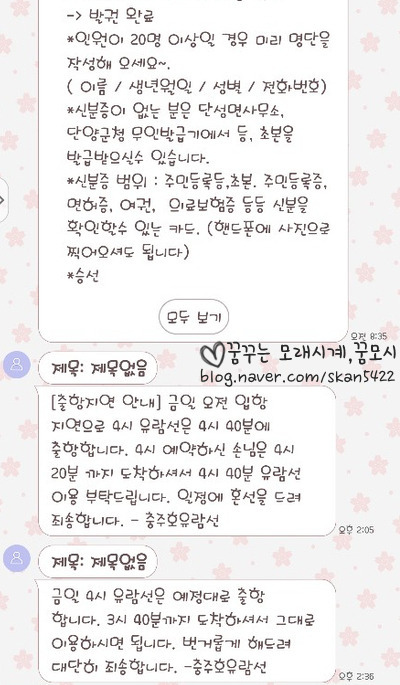 -> 발권 완료
*인원이 20명 이상일 경우 미리 명단을
작성해 오세요~.
( 이름 / 생년월일 / 성별 / 전화번호)
*신분증이 없는 분은 단성면사무소,
단양군청 무인발급기에서 등, 초본을
발급받으실수 있습니다.
*신분증 범위 : 주민등록등,초본. 주민등록증,
면허증, 여권, 의료보험증 등등 신분을
확인할수 있는 카드. (핸드폰에 사진으로
찍어오셔도 됩니다)
*승선
모두 보기
오전 8:35
꿈꾸는 모래시계,꿈모시
blog.naver.com/skan5422
제목: 제목없음
[출항지연 안내] 금일 오전 입항
지연으로 4시 유람선은 4시 40분에
출항합니다. 4시 예약하신 손님은 4시
20분 까지 도착하셔서 4시 40분 유람선
이용 부탁드립니다. 일정에 혼선을 드려
죄송합니다. - 충주호유람선
오후 2:05
제목: 제목없음
금일 4시 유람선은 예정대로 출항
합니다. 3시 40분까지 도착하셔서 그대로
이용하시면 됩니다. 번거롭게 해드려
대단히 죄송합니다. -충주호유람선
오후 2:36